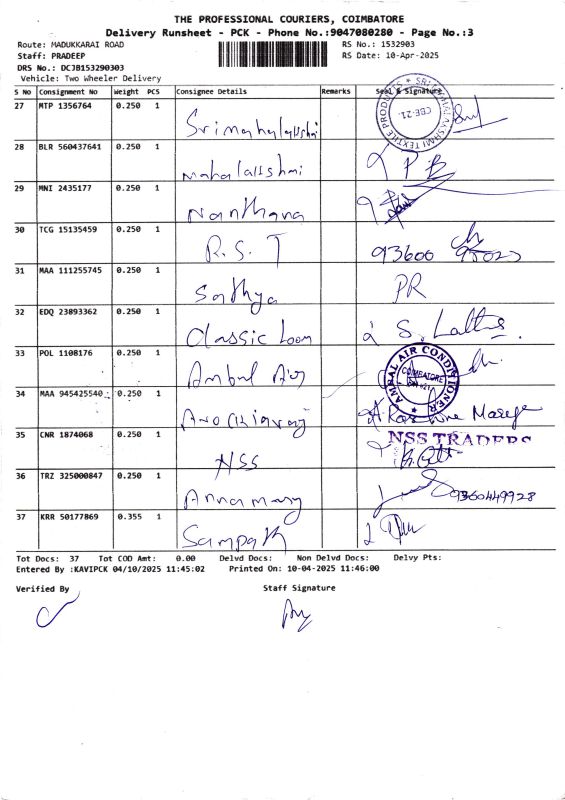 THE PROFESSIONAL COURIERS, COIMBATORE
Delivery Runsheet - PCK - Phone No.:9047080280 - Page No.:3
Route: MADUKKARAI ROAD RS No.: 1532903
Staff: PRADEEP RS Date: 10-Apr-2025
DRS No.: DCJB153290303
Vehicle: Two Wheeler Delivery
S No Consignment No Weight PCS Consignee Details Remarks Seal & Signature
27 MTP 1356764 0.250 1 Srimahalakshmi
SRI MAHALAKSHMI TEXTILE PRODUCTS CBE-21.
28 BLR 560437641 0.250 1 Mahalakshmi
29 MNI 2435177 0.250 1 Nanthana
30 TCG 15135459 0.250 1 R.S.T 93600 95023
31 MAA 111255745 0.250 1 Sathya PR
32 EDQ 23893362 0.250 1 Classic Loom
33 POL 1108176 0.250 1 Ambal Air
AMBAL AIR CONDITIONER COIMBATORE
34 MAA 945425540 0.250 1 Arockiaraj
35 CNR 1874068 0.250 1 NSS NSS TRADERS
36 TRZ 325000847 0.250 1 Annamary 9360449928
37 KRR 50177869 0.355 1 Sampath
Tot Docs: 37 Tot COD Amt: 0.00 Delvd Docs: Non Delvd Docs: Delvy Pts:
Entered By :KAVIPCK 04/10/2025 11:45:02 Printed On: 10-04-2025 11:46:00
Verified By Staff Signature